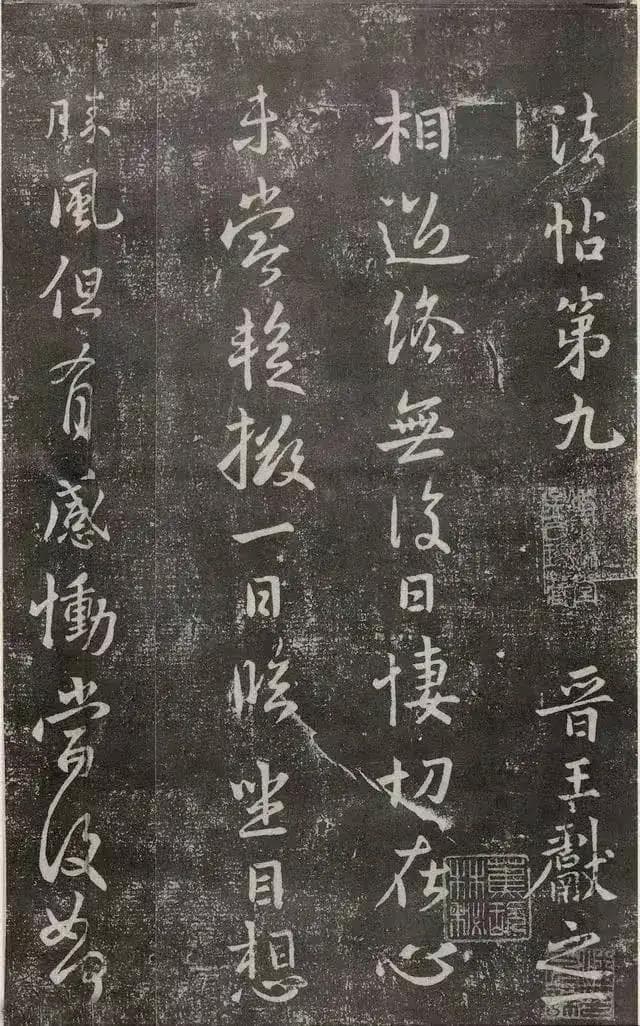 法帖第九 晋王獻之一
相過終無復日悽切在心
未嘗暫撥一日臨坐目想
勝風但有感慟當復如何